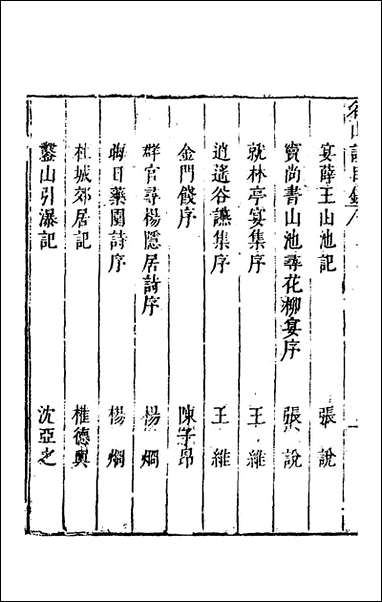 名山記目錄 八
宴薛王山池記 張說
竇尚書山池尋花柳宴序 張說
就林亭宴集序 王維
逍遙谷讌集序 王維
金門餞序 陳子昂
群官尋楊隱居詩序 楊烱
晦日藥園詩序 楊烱
杜城郊居記 權德輿
鑿山引瀑記 沈亞之